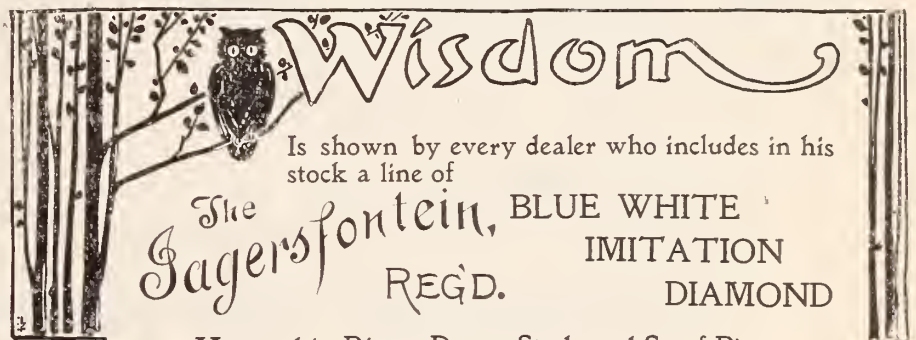 Wisdom
Is shown by every dealer who includes in his
stock a line of
The Jagersfontein, BLUE WHITE
IMITATION
REG'D. DIAMOND